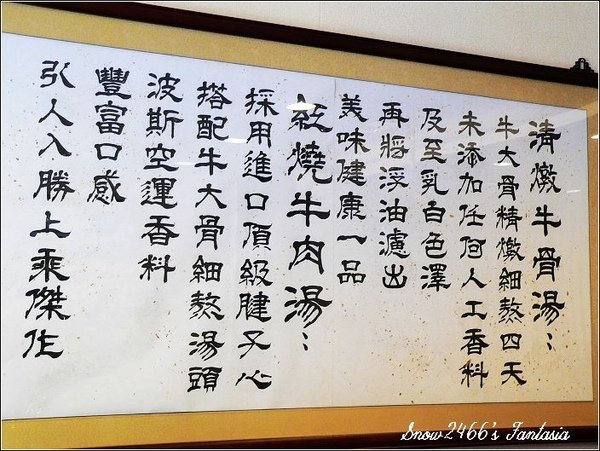 清燉牛骨湯：
牛大骨精燉細熬四天
未添加任何人工香料
及至乳白色澤
再將浮油濾出
美味健康一品
紅燒牛肉湯：
採用進口頂級腱子心
搭配牛大骨細熬湯頭
波斯空運香料
豐富口感
引人入勝上乘傑作
Snow2466's Fantasia